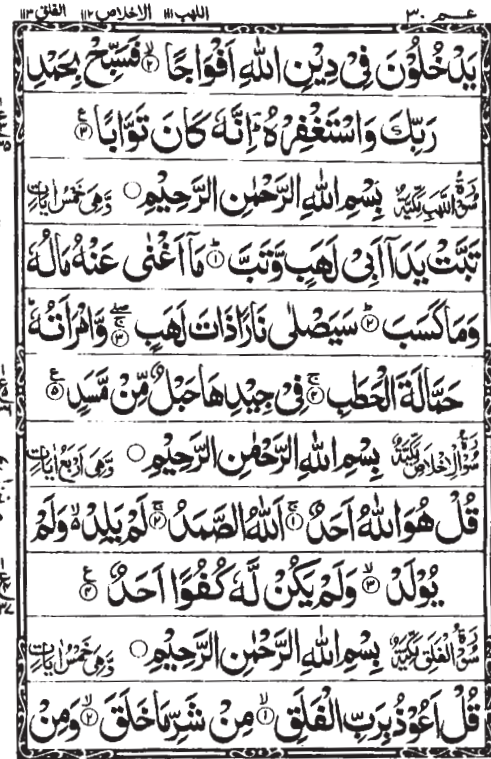 عـم ٣٠ اللهب ١١١ الاخلاص ١١٢ الفلق ١١٣
يَدْخُلُوْنَ فِىْ دِيْنِ اللّٰهِ اَفْوَاجًا ۙ‏﴿۲﴾ فَسَبِّحْ بِحَمْدِ
رَبِّكَ وَاسْتَغْفِرْهُ‌ ؕ اِنَّهٗ كَانَ تَوَّابًا ﴿۳﴾ ع
سُوْرَةُ اللَّهَبِ مَكِّيَّةٌ بِسْمِ اللّٰهِ الرَّحْمٰنِ الرَّحِيْمِ ○ وَهِىَ خَمْسُ اٰيَاتٍ
تَبَّتْ يَدَاۤ اَبِىْ لَهَبٍ وَّتَبَّ ؕ﴿۱﴾ مَاۤ اَغْنٰى عَنْهُ مَالُهٗ
وَمَا كَسَبَ ؕ﴿۲﴾ سَيَصْلٰى نَارًا ذَاتَ لَهَبٍ ۖۚ﴿۳﴾ وَّامْرَاَتُهٗ ؕ
حَمَّالَةَ الْحَطَبِ‌ ۚ﴿۴﴾ فِىْ جِيْدِهَا حَبْلٌ مِّنْ مَّسَدٍ ﴿۵﴾ ع
سُوْرَةُ الْاِخْلَاصِ مَكِّيَّةٌ بِسْمِ اللّٰهِ الرَّحْمٰنِ الرَّحِيْمِ ○ وَهِىَ اَرْبَعُ اٰيَاتٍ
قُلْ هُوَ اللّٰهُ اَحَدٌ‌ ۚ﴿۱﴾ اَللّٰهُ الصَّمَدُ‌ ۚ﴿۲﴾ لَمْ يَلِدْ ۙ وَلَمْ
يُوْلَدْ ۙ﴿۳﴾ وَلَمْ يَكُنْ لَّهٗ كُفُوًا اَحَدٌ ﴿۴﴾ ع
سُوْرَةُ الْفَلَقِ مَكِّيَّةٌ بِسْمِ اللّٰهِ الرَّحْمٰنِ الرَّحِيْمِ ○ وَهِىَ خَمْسُ اٰيَاتٍ
قُلْ اَعُوْذُ بِرَبِّ الْفَلَقِ ۙ﴿۱﴾ مِنْ شَرِّ مَا خَلَقَ ۙ﴿۲﴾ وَمِنْ